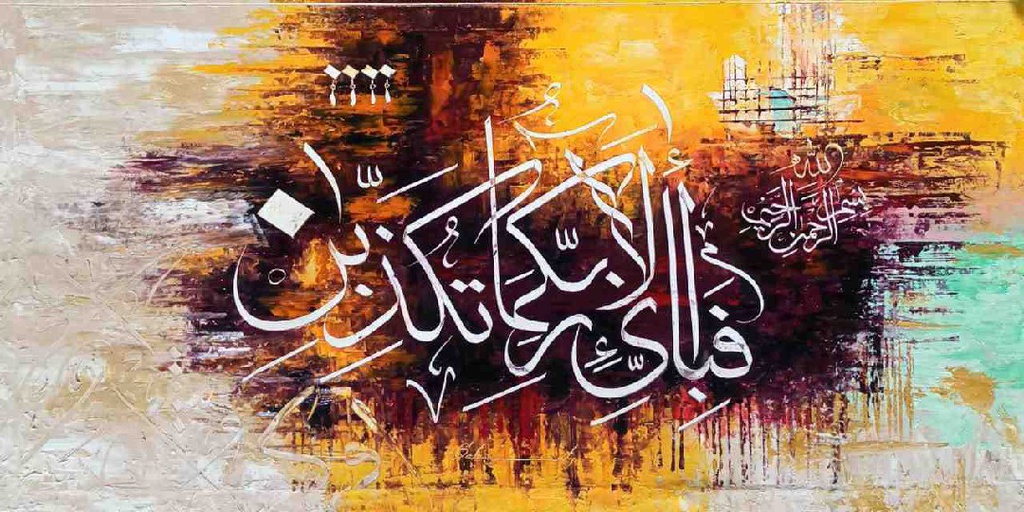 بسم الله الرحمن الرحيم
فَبِأَيِّ آلَاءِ رَبِّكُمَا تُكَذِّبَانِ